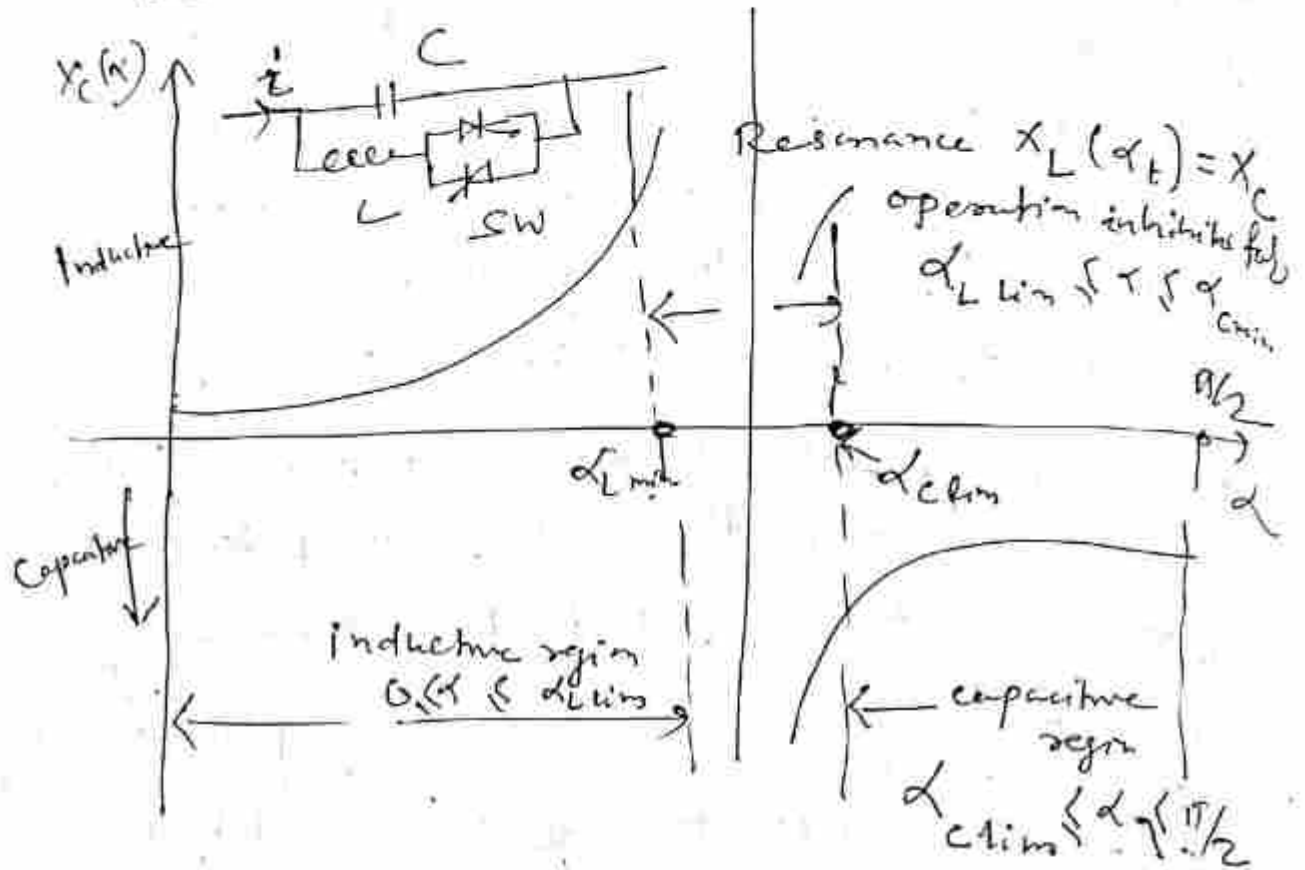 X_C(α)
C
i
L
SW
Inductive
Resonance X_L(α_t) = X_C
operation inhibits for
α_L lim ≤ α ≤ α_C min
π/2
α_L min
α_C lim
α
Capacitive
inductive region
0 ≤ α ≤ α_L lim
capacitive
region
α_C lim ≤ α ≤ π/2